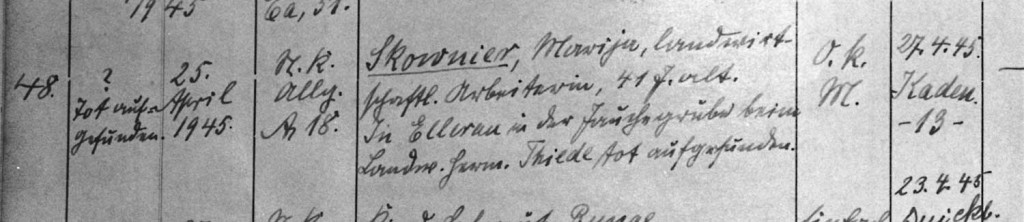 1945
Ca, 51.
48.
?
Tot auf-
gefunden.
25.
April
1945.
N. K.
Allg.
A, 18.
Skownier, Marija, landwirt-
schaftl. Arbeiterin, 41 J. alt.
In Ellerau in der Jauchegrube beim
Landw. Herm. Thiede tot aufgefunden.
O. k.
M.
27.4.45.
Kaden.
-13-
23.4.45
Quickb.
N. K.
Runge